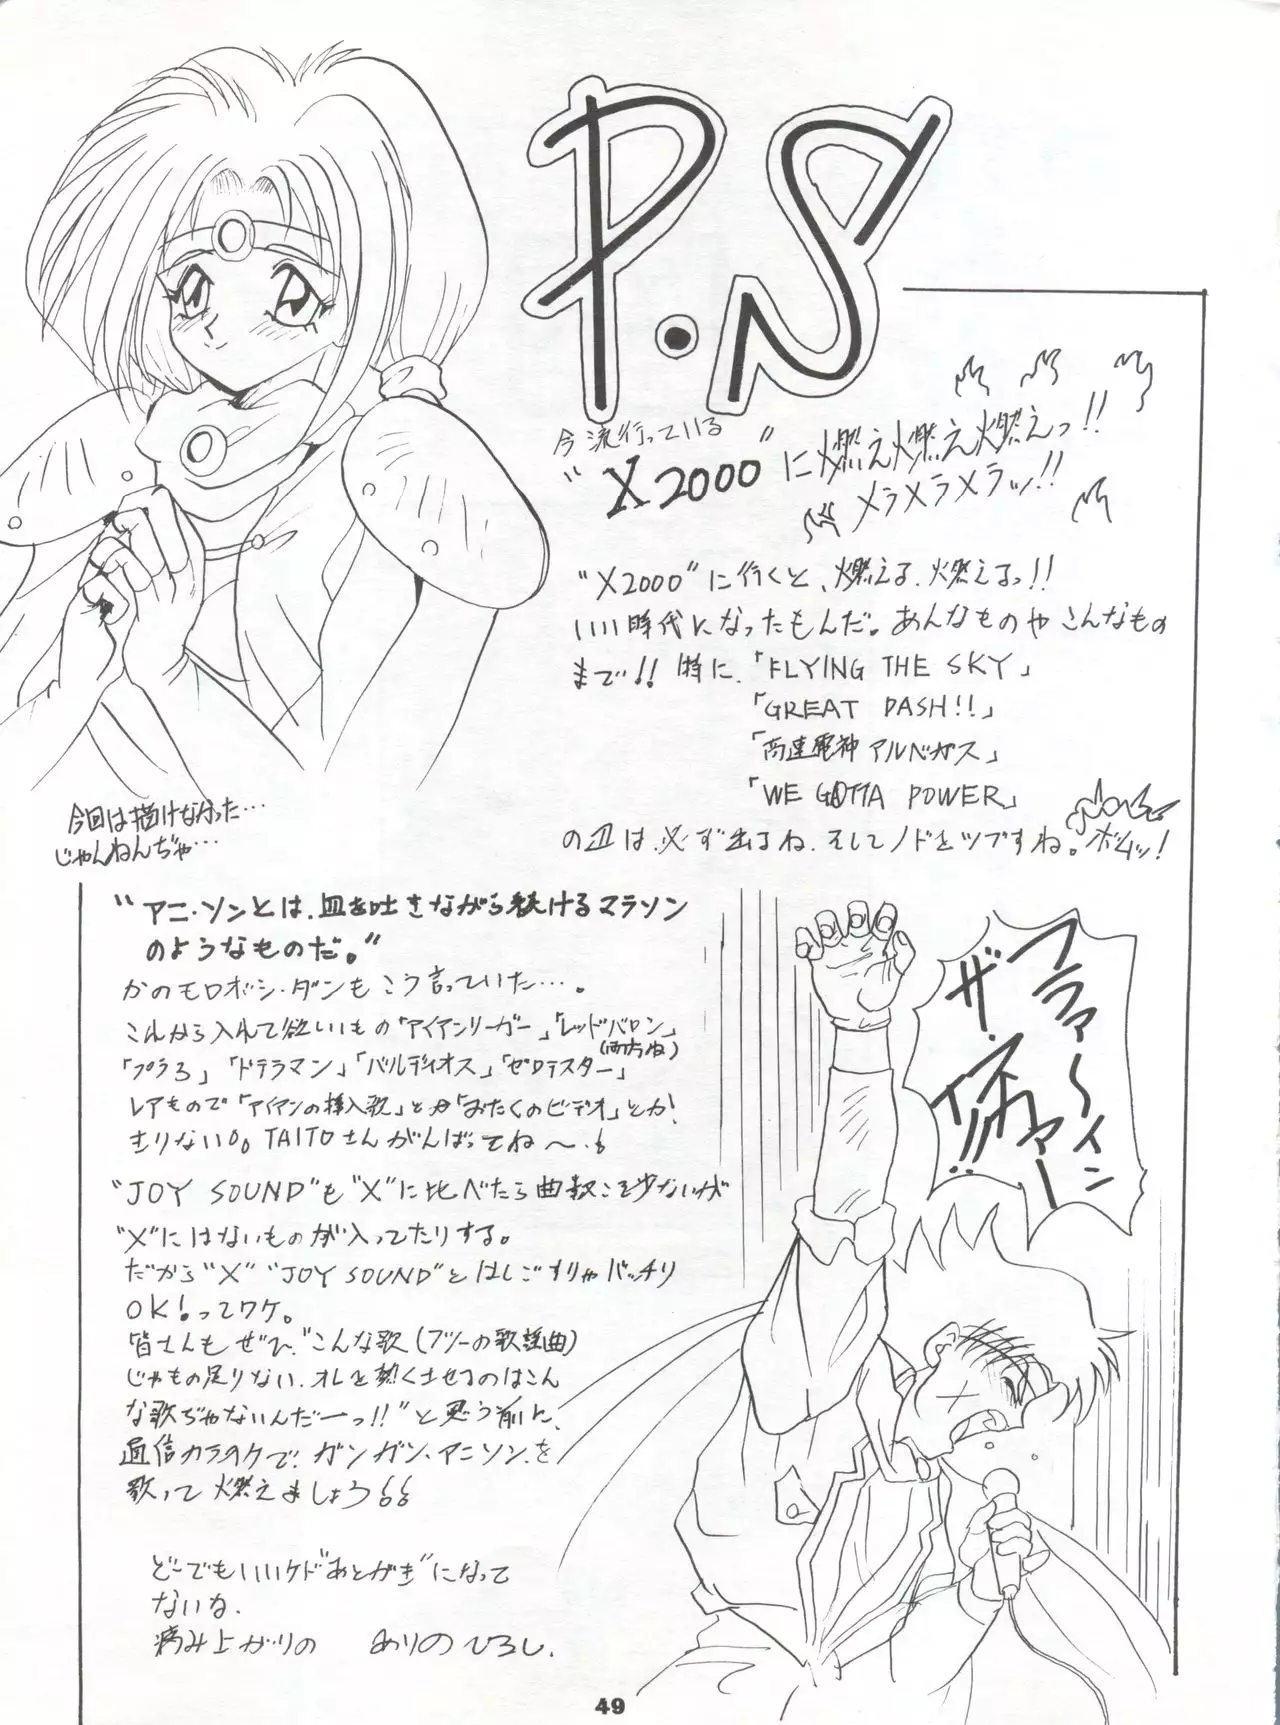 P.S
今流行っている
"X2000"に燃え燃え燃えっ!!
メラメラメラッ!!
"X2000"に行くと、燃える、燃えるっ!!
いい時代になったもんだ。あんなものやこんなもの
まで!! 特に、「FLYING THE SKY」
「GREAT DASH!!」
「高速電神アルベガス」
「WE GOTTA POWER」
の辺は、必ず出るね、そしてノドをツブすね。ボムッ!
今回は描けなかった…
じゃんねんぢゃ…
"アニ・ソンとは、血を吐きながら続けるマラソン
のようなものだ。"
かのモロボシ・ダンもこう言っていた…。
これから入れて欲しいもの「アイアンリーガー」「レッドバロン」
(両方ね)
「プラ3」「ドテラマン」「バルディオス」「ゼロテスター」
レアもので「アイアンの挿入歌」とか「おたくのビデオ」とか!
きりない。TAITOさんがんばってね〜。
"JOY SOUND"も"X"に比べたら曲数こそ少ないが
"X"にはないものが入ってたりする。
だから"X" "JOY SOUND"とはしごすりゃバッチリ
OK!ってワケ。
皆さんもぜひ、"こんな歌(フツーの歌謡曲)
じゃもの足りない、オレを熱くさせるのはこん
な歌ぢゃないんだーっ!!"と思う前に、
通信カラオケで、ガンガン、アニソンを
歌って燃えましょう
どーでもいいケド"あとがき"になって
ないね、
病み上がりの ありのひろし.
ファイ〜イン
ザ・スカァー
49